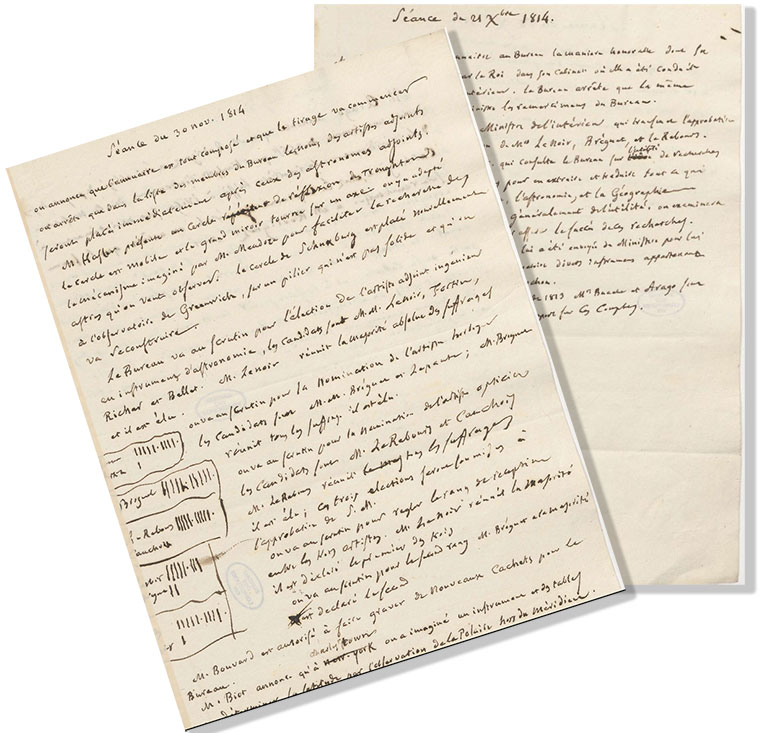 Séance du 30 nov. 1814
on annonce que l'annuaire est tout composé et que le tirage va commencer
on arrête que dans la liste des membres du Bureau les noms des artistes adjoints
seront placés immédiatement après ceux des astronomes adjoints.
M. Hasler présente un cercle de réflexion de Troughton
le cercle est mobile et le grand miroir tourne sur un axe; on y a adapté
le mécanisme imaginé par M. Mendoza pour faciliter la recherche des
astres qu'on veut observer. le cercle de est placé nouvellement
à l'observatoire de Greenwich, sur un pilier qui n'est pas solide et qu'on
va reconstruire.
Le Bureau va au scrutin pour l'élection de l'artiste adjoint ingénieur
en instrumens d'astronomie, les candidats sont M.M. Lenoir, Fortin,
Richer et Bellet. M. Lenoir réunit la majorité absolue des suffrages
et il est élu.
on va au scrutin pour la nomination de l'artiste horloger
les candidats sont M.M. Bréguet et Lepaute; M. Breguet
réunit tous les suffrages il est élu.
on va au scrutin pour la nomination de l'artiste opticien
les candidats sont M. LeRebours et Cauchoix
M. LeRebours réunit tous les suffrages
il est élu; ces trois élections seront soumises à
l'approbation de S. M.
on va au scrutin pour regler le rang de réception
entre les trois artistes. M. Lenoir réunit la majorité
il est déclaré le premier des trois
on va au scrutin pour le second rang M. Bréguet a la majorité
est declaré le second
Breguet
Le Rebours
Cauchoix
M. Bouvard est autorisé à faire graver de nouveaux cachets pour le
Bureau.
M. Biot annonce qu'à new-york on a imaginé un instrument et des tables
déterminer la latitude par l'observation de la Polaire hors du méridien.
Séance du 21 Xbre 1814.
au Bureau la maniere honorable dont
par le Roi dans son Cabinet où il a été conduit
intérieur. le Bureau arrête que la même
les remercimens du Bureau.
Ministre de l'intérieur qui transmet l'approbation
de Mrs Lenoir, Bréguet, et Le Rebours.
qui consulte le Bureau sur de recherches
pour en extraire et traduire tout ce qui
l'astronomie et la Géographie
généralement de l'utilité. on examinera
le succès de ces recherches.
lui a été envoyé du Ministre pour lui
divers instrumens appartenants
1813 Mrs Buache et Arago sur
sur les comptes.